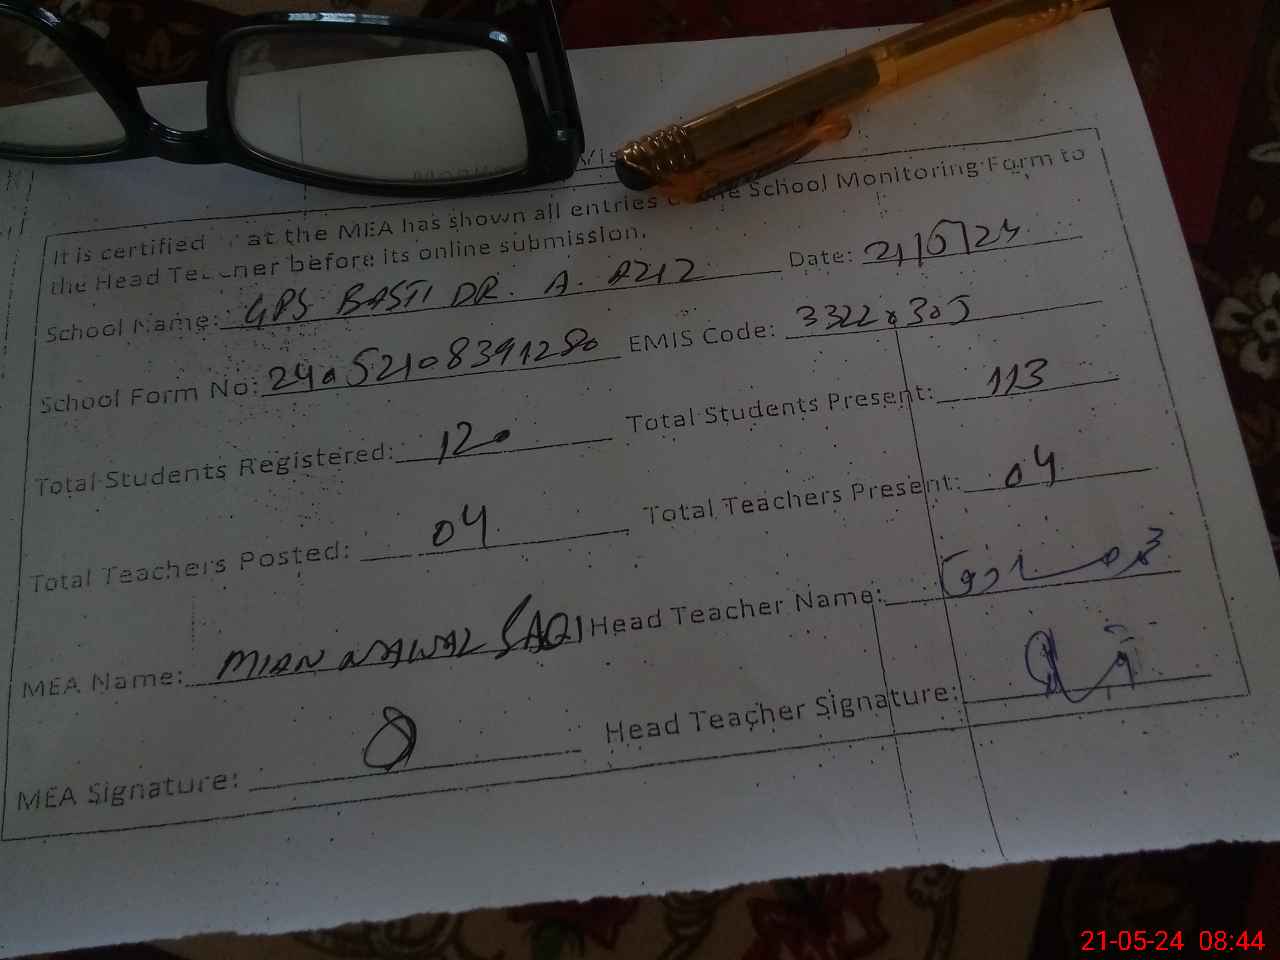 It is certified at the MEA has shown all entries School Monitoring Form to
the Head Teacher before its online submission.
School Name: GPS BASTI DR. A. AZIZ Date: 21/5/24
School Form No: 24052108391280 EMIS Code: 33220305
Total Students Registered: 120 Total Students Present: 113
Total Teachers Posted: 04 Total Teachers Present: 04
MEA Name: MIAN NAWAZ Head Teacher Name:
MEA Signature: Head Teacher Signature:
21-05-24 08:44